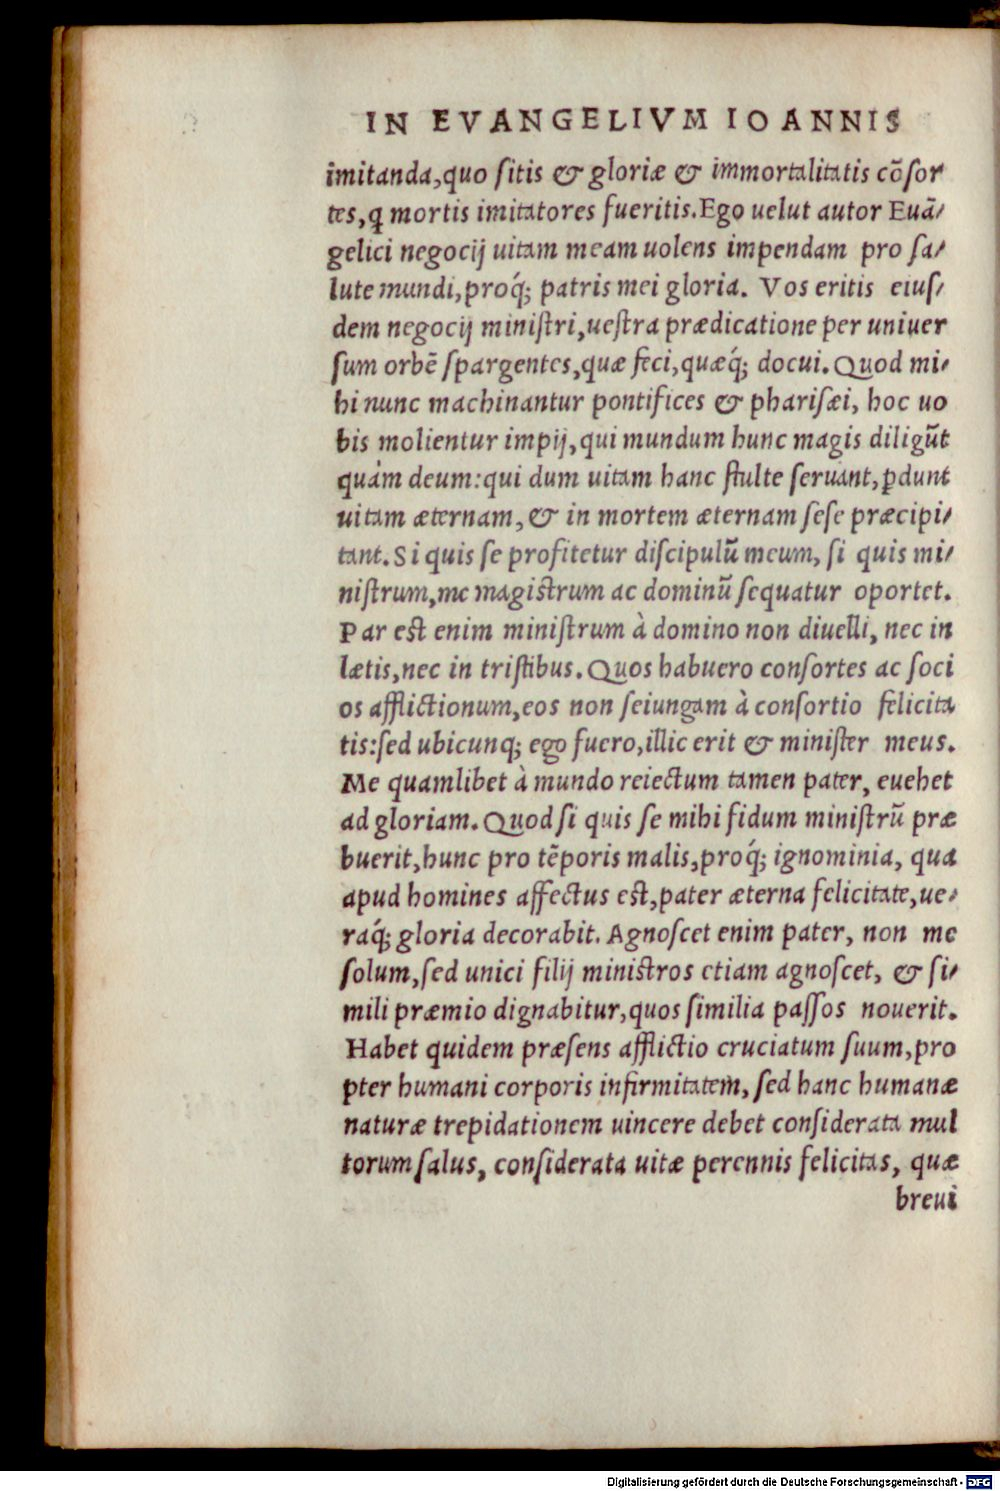 IN EVANGELIVM IOANNIS
imitanda,quo ſitis & gloriæ & immortalitatis cõſor
tes,ꝗ mortis imitatores fueritis.Ego uelut autor Euã/
gelici negocij uitam meam uolens impendam pro ſa/
lute mundi,proq́; patris mei gloria. Vos eritis eiuſ/
dem negocij miniſtri,ueſtra prædicatione per uniuer
ſum orbẽ ſpargentes,quæ feci,quæq́; docui.Quod mi/
hi nunc machinantur pontifices & phariſæi, hoc uo
bis molientur impij,qui mundum hunc magis diligũt
quàm deum:qui dum uitam hanc ſtulte ſeruant,ꝑdunt
uitam æternam,& in mortem æternam ſeſe præcipi/
tant.Si quis ſe profitetur diſcipulũ meum, ſi quis mi/
niſtrum,me magiſtrum ac dominũ ſequatur oportet.
Par eſt enim miniſtrum à domino non diuelli, nec in
lætis,nec in triſtibus.Quos habuero conſortes ac ſoci
os afflictionum,eos non ſeiungam à conſortio felicita
tis:ſed ubicunq; ego fuero,illic erit & miniſter meus.
Me quamlibet à mundo reiectum tamen pater, euehet
ad gloriam.Quod ſi quis ſe mihi fidum miniſtrũ præ
buerit,hunc pro tẽporis malis,proq́; ignominia, qua
apud homines affectus eſt,pater æterna felicitate,ue/
raq́; gloria decorabit. Agnoſcet enim pater, non me
ſolum,ſed unici filij miniſtros etiam agnoſcet, & ſi/
mili præmio dignabitur,quos ſimilia paſſos nouerit.
Habet quidem præſens afflictio cruciatum ſuum,pro
pter humani corporis infirmitatem, ſed hanc humanæ
naturæ trepidationem uincere debet conſiderata mul
torum ſalus, conſiderata uitæ perennis felicitas, quæ
breui
Digitalisierung gefördert durch die Deutsche Forschungsgemeinschaft - DFG